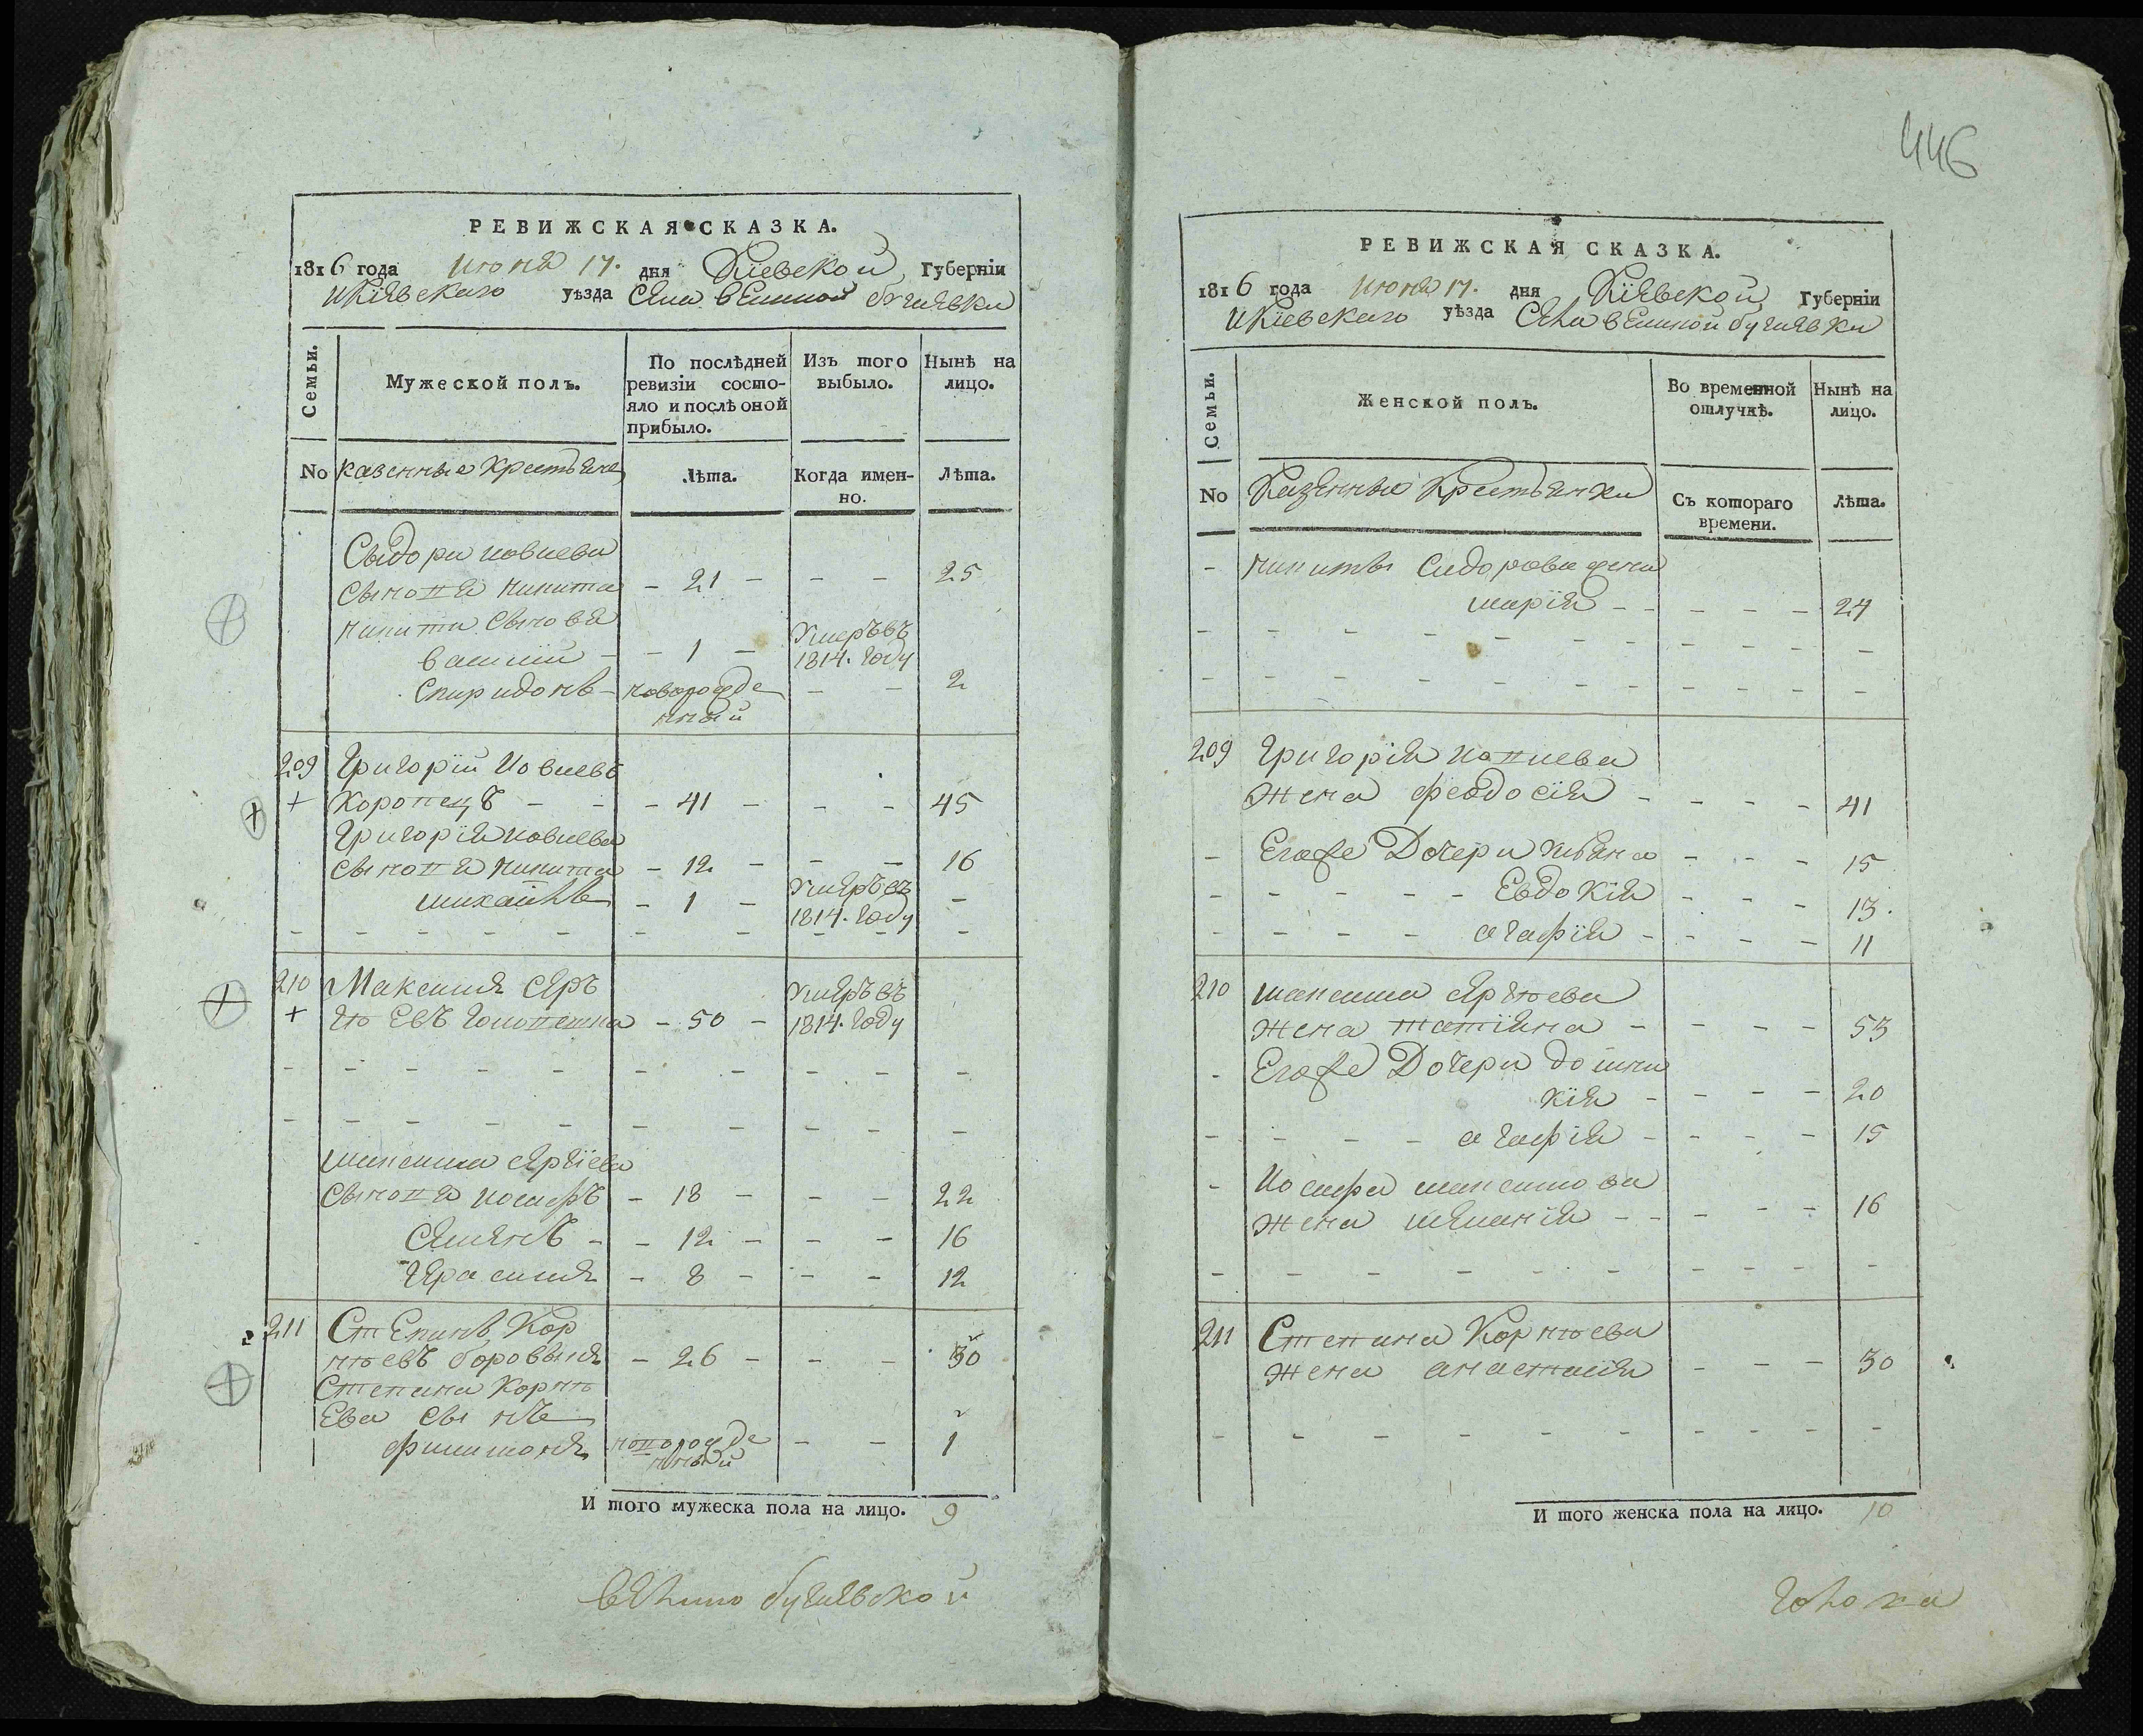 446
РЕВИЖСКАЯ СКАЗКА.
1816 года июня 17. дня Кіевской Губерніи
и Кіевскаго уѣзда Села великой бугаевки
Семьи.
Мужеской полъ.
По послѣдней ревизіи состо-
яло и послѣ оной
прибыло.
Изъ того
выбыло.
Нынѣ на
лицо.
No казенные Крестьяне
Лѣта.
Когда имен-
но.
Лѣта.
Сыдора иовлева
Сыновя никита - 21 - - - 25
никиты Сыновя
василий - - 1 - Умеръ въ
1814. году
Спиридонъ - новорожде - - 2
нный
209 Григорій Иовлевъ
+ Коропецъ - - - 41 - - - 45
Григорія иовлева
сыновя никита - 12 - - - 16
михайло - 1 - Умеръ въ -
1814. году
210 Максимъ Сер Умеръ въ
+ гѣевъ - 50 - 1814. году
максима сергіева
сыновя иосифъ - 18 - - - 22
Семенъ - - 12 - - - 16
Герасимъ - 8 - - - 12
211 Степанъ Кор
нѣевъ боровыкъ - 26 - - - 30
Степана Корнѣ
Ева сынъ
филимонъ новорожде - - 1
нный
И того мужеска пола на лицо. 9
велико бугаевской
РЕВИЖСКАЯ СКАЗКА.
1816 года июня 17. дня Кіевской Губерніи
и Кіевскаго уѣзда Села великой бугаевки
Семьи.
Женской полъ.
Во временной
отлучкѣ.
Нынѣ на
лицо.
No Казенные Крестьянки
Съ котораго
времени.
Лѣта.
- никиты Сидорова жена
марія - - - - - 24
209 Григорія иовлева
жена феодосія - - - - 41
- Егоже Дочери ульяна - - - 15
Евдокія - - - 13.
агафія - - - - 11
210 максима сергѣева
жена татіяна - - - - 53
- Егоже Дочери домни
кія - - - - 20
агафія - - - - 15
- Иосифа максимова
жена меланія - - - - - 16
211 Степана Корнѣева
жена анастасія - - - 30
И того женска пола на лицо. 10
голова